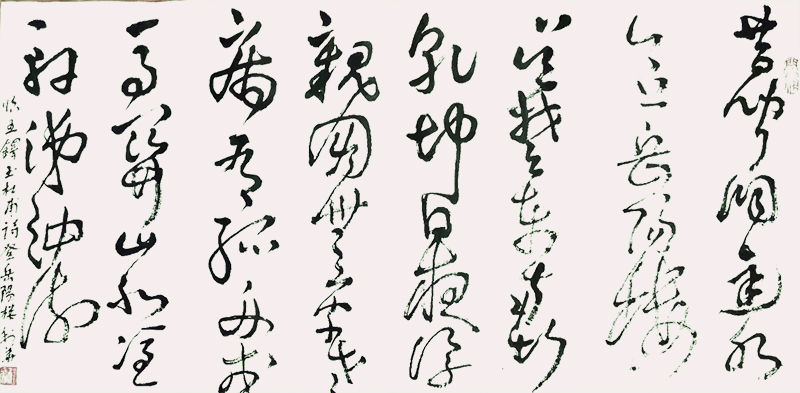 昔聞洞庭水
今上岳陽樓
吳楚東南坼
乾坤日夜浮
親朋無一字老
病有孤舟戎
馬關山北憑
軒涕泗流
臨王鐸書杜甫詩登岳陽樓